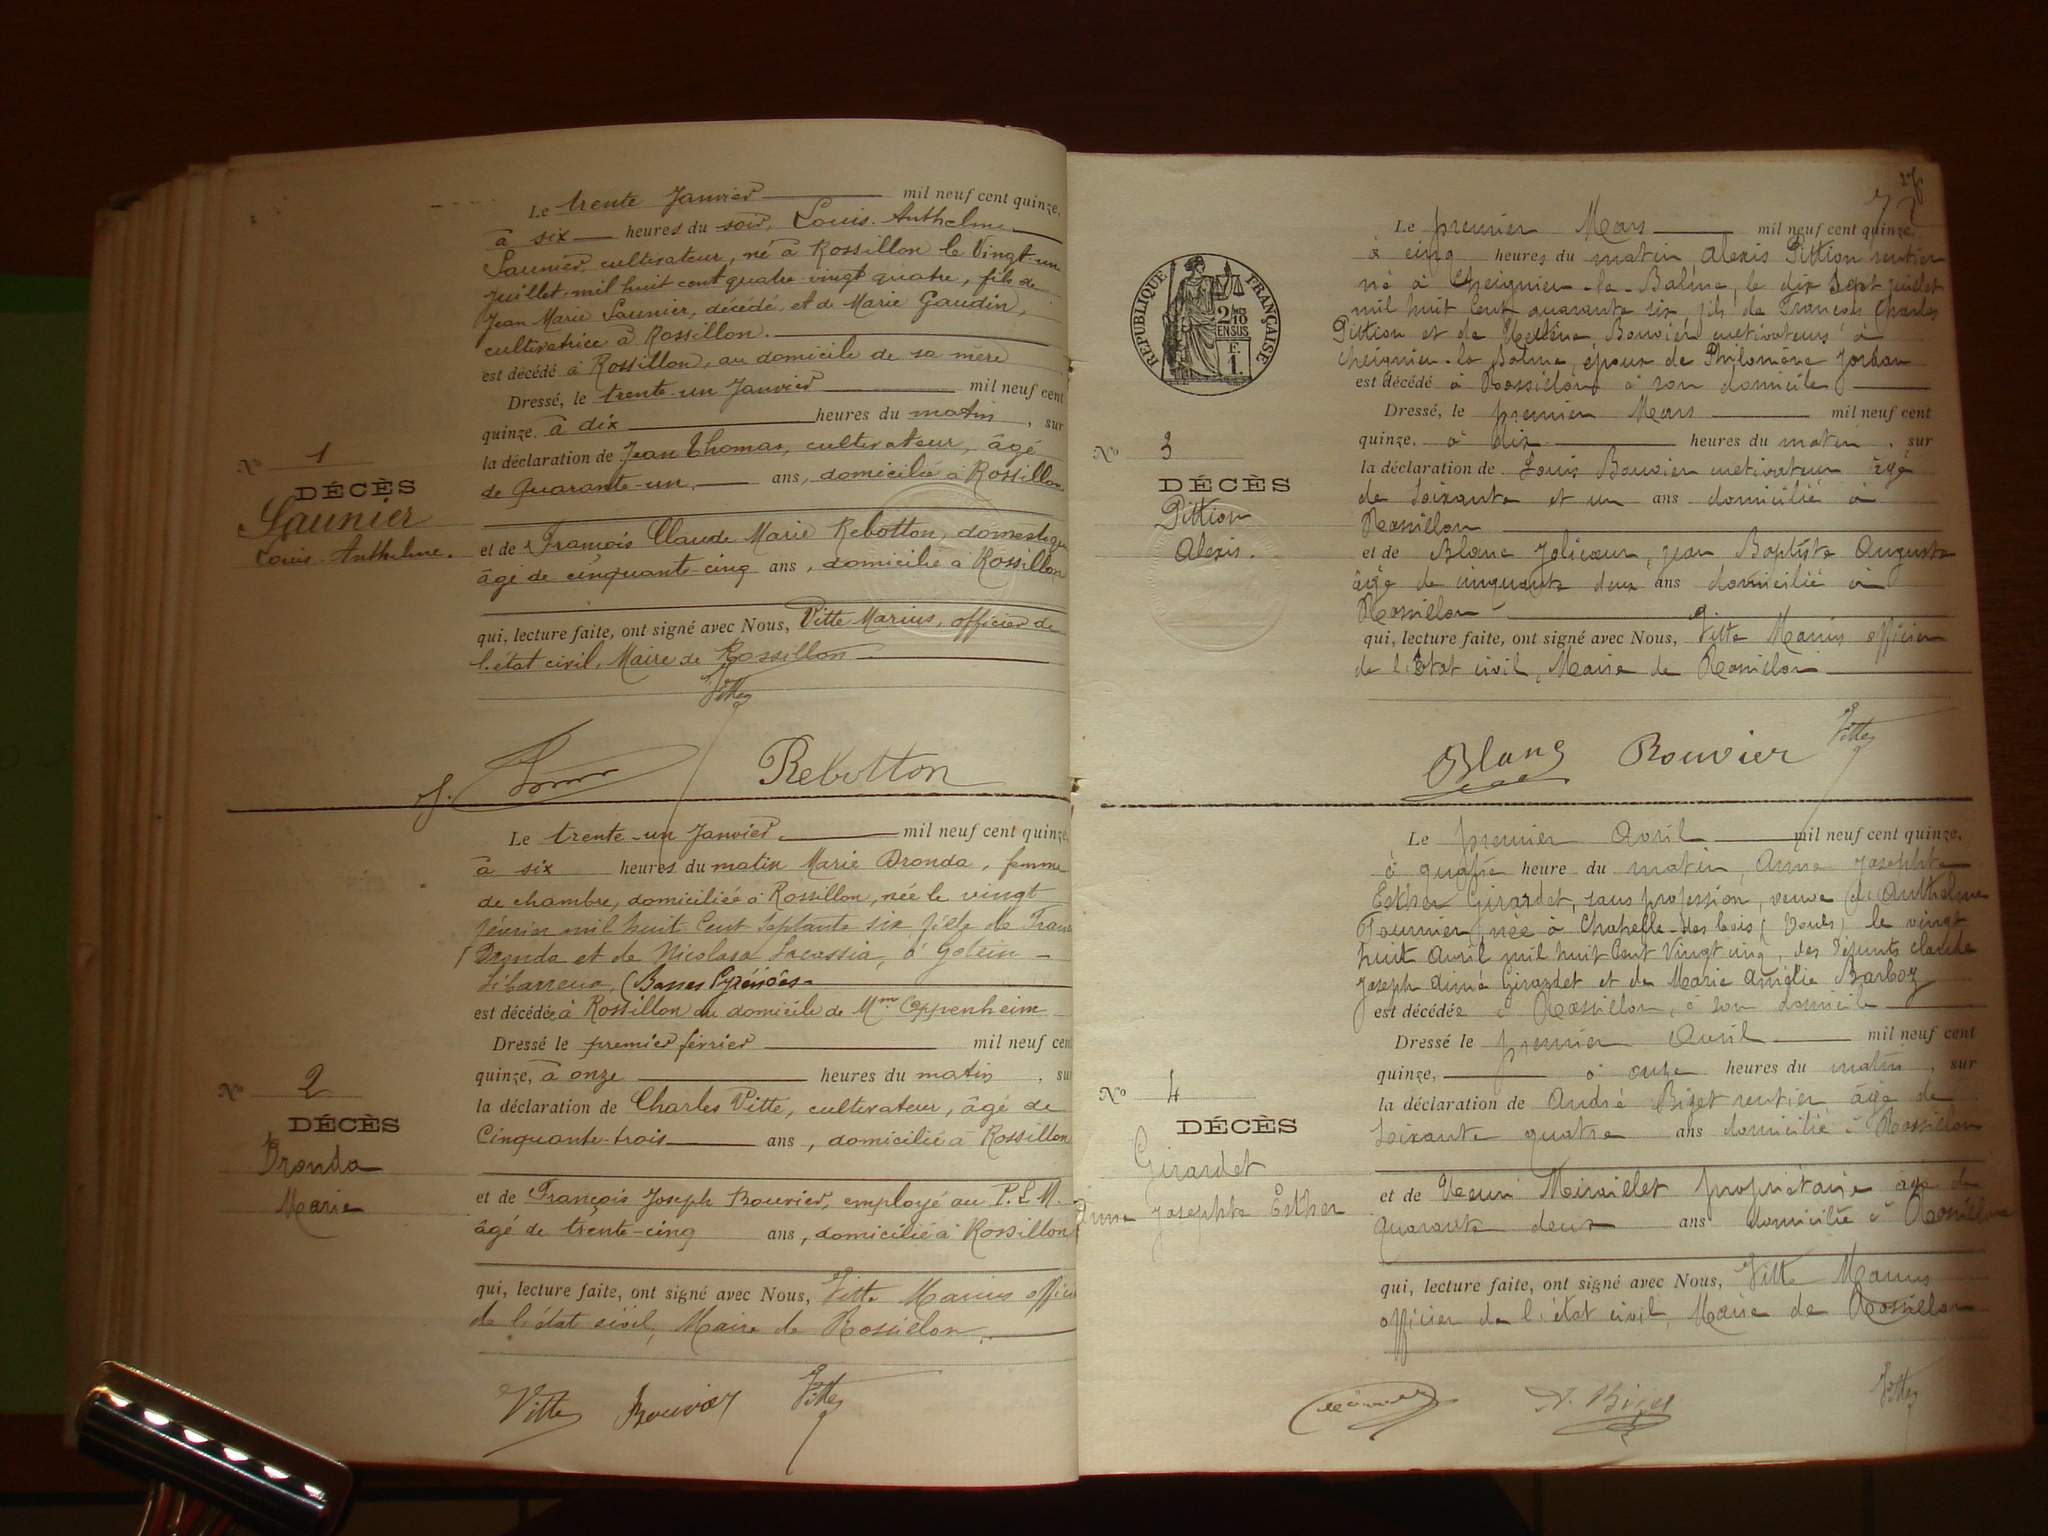 Le trente Janvier mil neuf cent quinze,
à six heures du soir, Louis-Anthelme
Saunier, cultivateur, né à Rossillon le Vingt-un
Juillet mil huit cent quatre-vingt quatre, fils de
Jean Marie Saunier, décédé, et de Marie Gaudin,
cultivatrice à Rossillon.
est décédé à Rossillon, au domicile de sa mère
Dressé, le trente-un Janvier mil neuf cent
quinze, à dix heures du matin, sur
la déclaration de Jean Thomas, cultivateur, âgé
de Quarante-un, ans, domicilié à Rossillon
et de François Claude Marie Rebotton, domestique
âgé de cinquante-cinq ans, domicilié à Rossillon
qui, lecture faite, ont signé avec Nous, Vitte Marius, officier de
l'état civil, Maire de Rossillon
Vitte
Rebotton
N° 1
DÉCÈS
Saunier
Louis-Anthelme.
Le trente-un Janvier mil neuf cent quinze,
à six heures du matin Marie Dronda, femme
de chambre, domiciliée à Rossillon, née le vingt
février mil huit cent septante six fille de
Dronda et de Nicolasa Lacassia, à
(Basses Pyrénées
est décédée à Rossillon au domicile de Mme Coppenheim
Dressé le premier février mil neuf cent
quinze, à onze heures du matin, sur
la déclaration de Charles Vitte, cultivateur, âgé de
Cinquante-trois ans, domicilié à Rossillon
et de François Joseph Bouvier, employé au P.L.M.
âgé de trente-cinq ans, domicilié à Rossillon
qui, lecture faite, ont signé avec Nous, Vitte Marius officier
de l'état civil, Maire de Rossillon.
Vitte Bouvier Vitte
N° 2
DÉCÈS
Dronda
Marie
Le premier Mars mil neuf cent quinze,
à cinq heures du matin, Alexis Pittion rentier
né à Cheignieu-la-Balme, le dix Sept juillet
mil huit cent quarante six, fils de François Charles
Pittion et de Bouvier cultivateurs à
Cheignieu-la Balme, époux de Philomène Jordan
est décédé à Rossillon à son domicile
Dressé, le premier Mars mil neuf cent
quinze, à dix heures du matin, sur
la déclaration de Louis Bouvier cultivateur âgé
de soixante et un ans domicilié à
Rossillon
et de Blanc Jolicoeur, Jean Baptiste Auguste
âgé de cinquante deux ans domicilié à
Rossillon
qui, lecture faite, ont signé avec Nous, Vitte Marius officier
de l'Etat civil, Maire de Rossillon
Blanc Bouvier Vitte
RÉPUBLIQUE FRANÇAISE
2/10
EN SUS
F.
1.
N° 3
DÉCÈS
Pittion
Alexis.
Le premier Avril mil neuf cent quinze,
à quatre heure du matin, Anne Josephte
Esther Girardet, sans profession, veuve de Anthelme
Fournier, née à Chapelle-des-bois (Doubs) le vingt
huit Avril mil huit cent vingt cinq, des défunts Claude
Joseph Aimé Girardet et de Marie Amélie Barboz
est décédée à Rossillon, à son domicile
Dressé le premier Avril mil neuf cent
quinze, à onze heures du matin, sur
la déclaration de André Bizet rentier âgé de
soixante quatre ans domicilié à Rossillon
et de Henri propriétaire âgé de
quarante deux ans domicilié à Rossillon
qui, lecture faite, ont signé avec Nous, Vitte Marius
officier de l'état civil, Maire de Rossillon
A. Bizet Vitte
N° 4
DÉCÈS
Girardet
Anne Josephte Esther